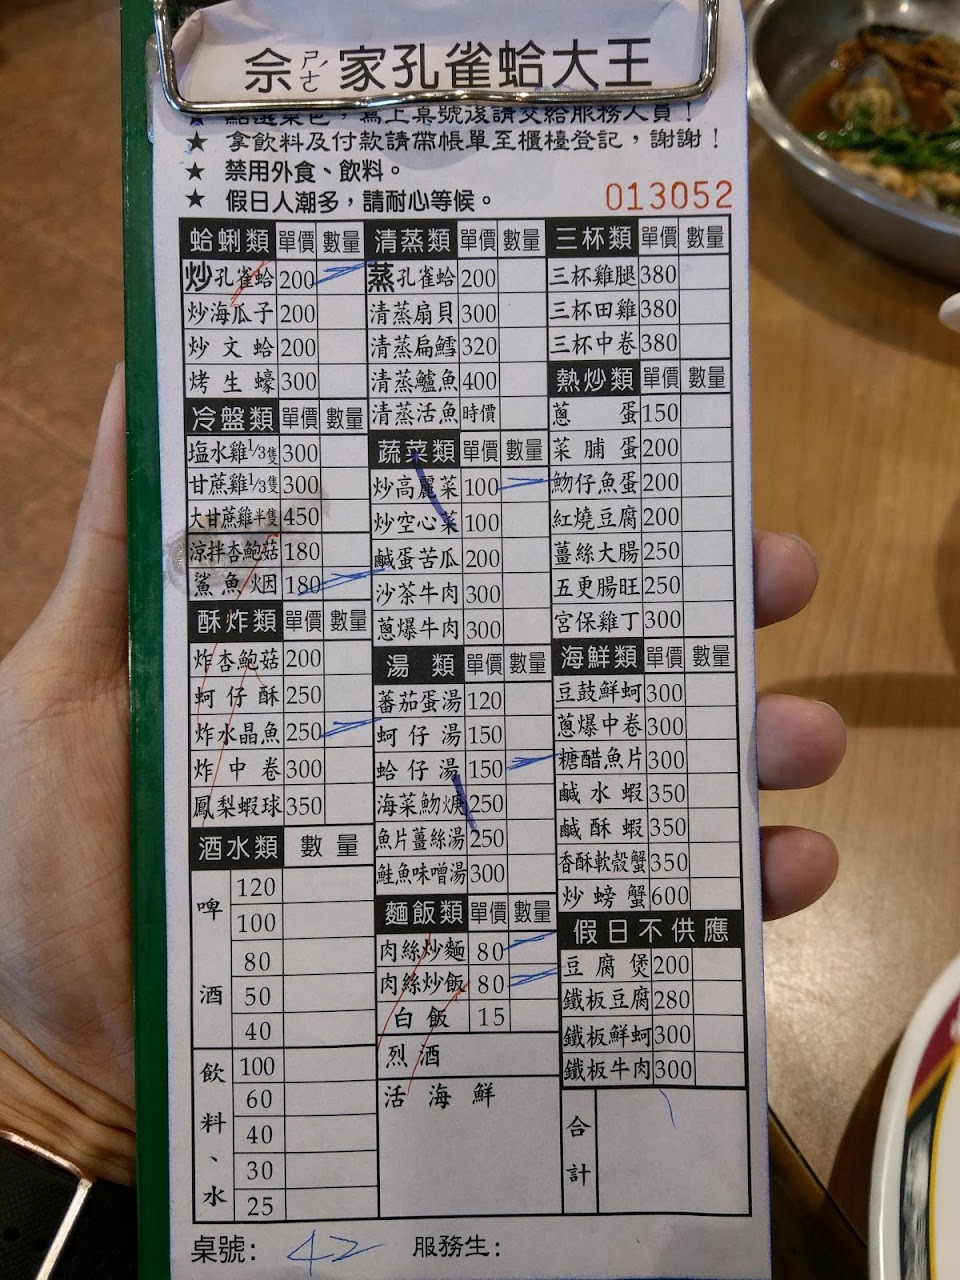 佘ㄕㄜˊ家孔雀蛤大王
★ 點選菜色，寫上桌號後請交給服務人員！
★ 拿飲料及付款請帶帳單至櫃檯登記，謝謝！
★ 禁用外食、飲料。
★ 假日人潮多，請耐心等候。
013052
蛤蜊類 單價 數量
炒孔雀蛤 200
炒海瓜子 200
炒文蛤 200
烤生蠔 300
冷盤類 單價 數量
塩水雞1/3隻 300
甘蔗雞1/3隻 300
大甘蔗雞半隻 450
涼拌杏鮑菇 180
鯊魚烟 180
酥炸類 單價 數量
炸杏鮑菇 200
蚵仔酥 250
炸水晶魚 250
炸中卷 300
鳳梨蝦球 350
酒水類 數量
啤酒
120
100
80
50
40
飲料、水
100
60
40
30
25
清蒸類 單價 數量
蒸孔雀蛤 200
清蒸扇貝 300
清蒸扁鱈 320
清蒸鱸魚 400
清蒸活魚 時價
蔬菜類 單價 數量
炒高麗菜 100
炒空心菜 100
鹹蛋苦瓜 200
沙茶牛肉 300
蔥爆牛肉 300
湯類 單價 數量
蕃茄蛋湯 120
蚵仔湯 150
蛤仔湯 150
海菜魩焿 250
魚片薑絲湯 250
鮭魚味噌湯 300
麵飯類 單價 數量
肉絲炒麵 80
肉絲炒飯 80
白飯 15
烈酒
活海鮮
三杯類 單價 數量
三杯雞腿 380
三杯田雞 380
三杯中卷 380
熱炒類 單價 數量
蔥蛋 150
菜脯蛋 200
魩仔魚蛋 200
紅燒豆腐 200
薑絲大腸 250
五更腸旺 250
宮保雞丁 300
海鮮類 單價 數量
豆鼓鮮蚵 300
蔥爆中卷 300
糖醋魚片 300
鹹水蝦 350
鹹酥蝦 350
香酥軟殼蟹 350
炒螃蟹 600
假日不供應
豆腐煲 200
鐵板豆腐 280
鐵板鮮蚵 300
鐵板牛肉 300
合計
桌號：42 服務生：